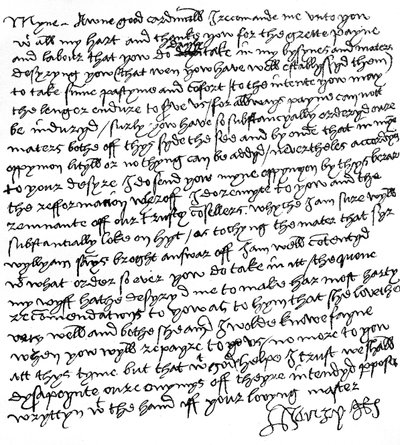 Myne awne good cardinall I recomande me vnto yow
wt all my hart and thanke yow for the grette payne
and labour that yow do dayly take in my bysynes and maters
desyryng yow (that wen yow have well establyssyd them)
to take summe pastyme and cōfort to the intente yow may
the lenger endure to serve vs / for allways payne can nott
be induryd / surly yow have so substancially orderyd oure
maters bothe off thys syde the see and byonde that in myne
oppynion lityll or no thyng can be addyd / nevertheles accordyng
to your desyre I do send yow myne oppynyon by thys berar
the refformation weroff I do remytte to yow and the
remnante off our trusty cōsellers whyche I am sure wyll
substantially loke on hyt / as tochyng the mater that syr
wyllyam says broght answar off I am well cōtentyd
wt what order so ever yow do take in itt / the quene
my wyff hathe desyryd me to make har most harty
recōmendations to yow as to hym that she lovethe
very well and bothe she and I wolde knowe fayne
when yow wyll repayre to vs / no more to yow
att thys tyme but that wt gods helpe I trust we shall
dysapoynte oure enymys off theyre intendyd pposse
wryttyn wt the hand off your lovyng master
Henry R